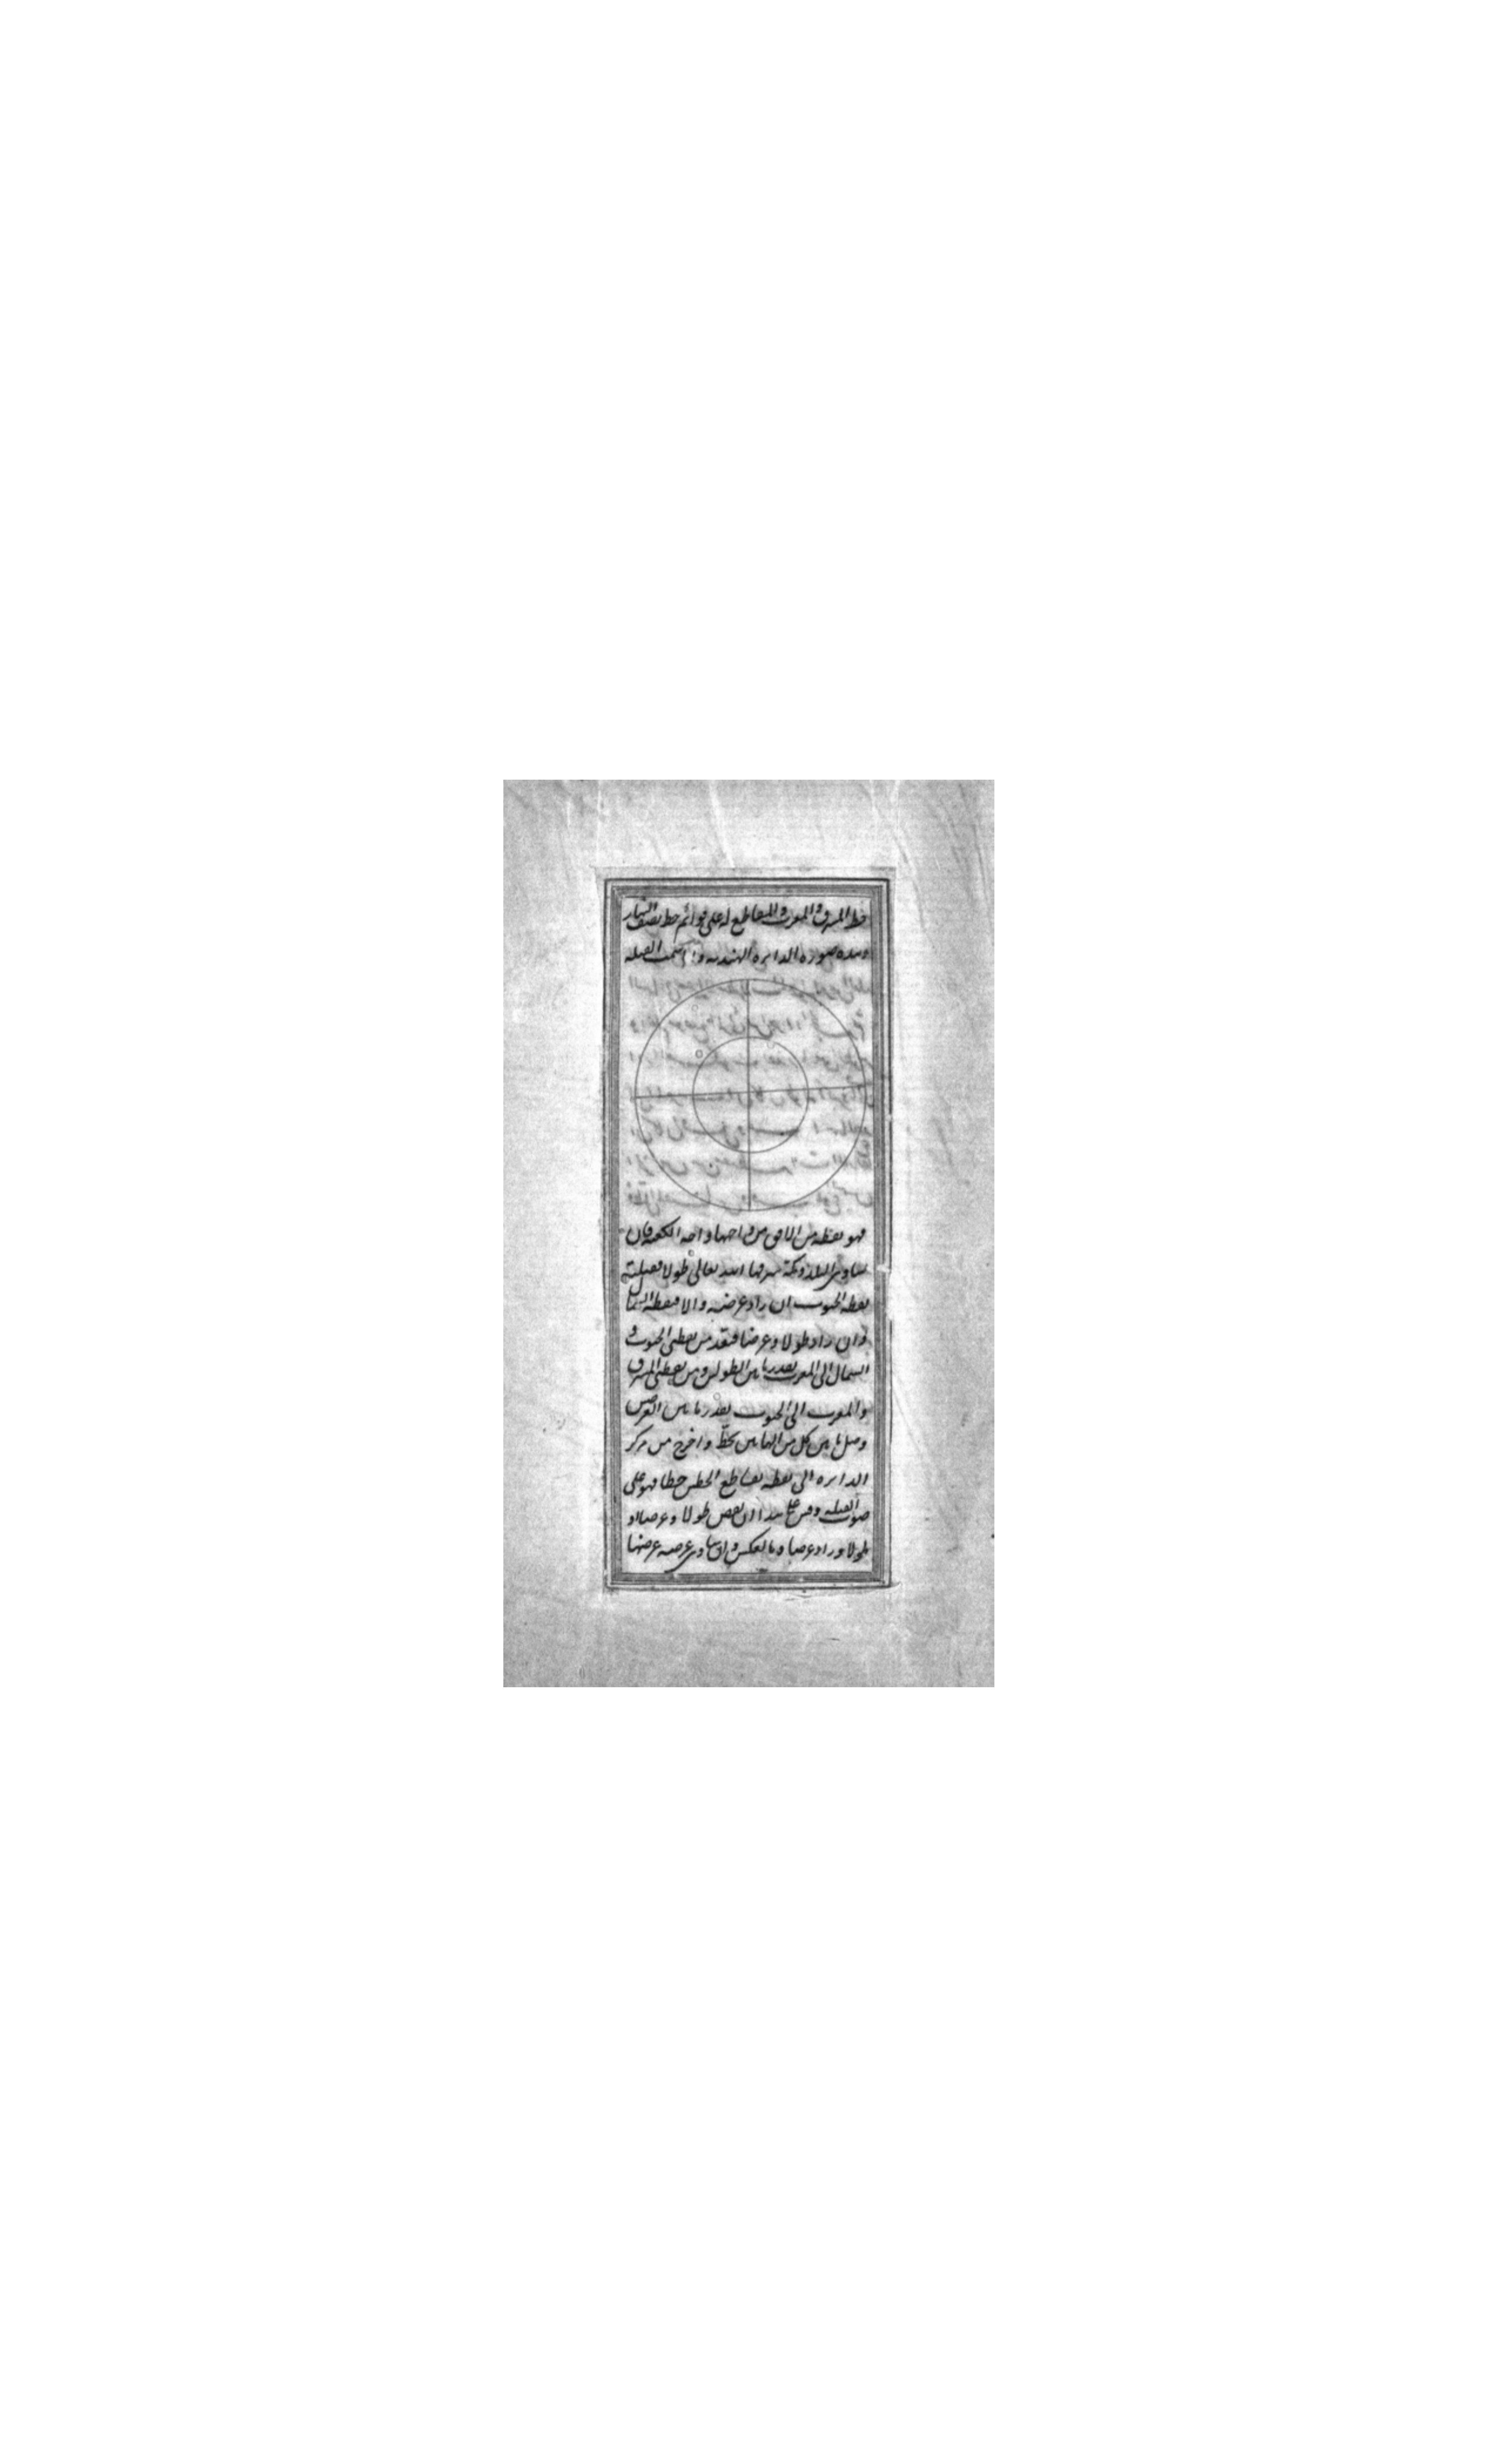 خط المشرق والمغرب والمقاطع له على قوائم خط نصف النهار
وهذه صورة الدايره الهنديه واما سمت القبله
فهو نقطه من الافق من واجهها واجه الكعبه فان
ساوى البلد ومكة شرفها الله تعالى طولا فقبلته
نقطه الجنوب ان زاد عرضه والا فنقطه الشمال
وان زاد طولا وعرضا فعد من نقطتى الجنوب و
الشمال الى المغرب بقدر ما بين الطولين ومن نقطتى المشرق
والمغرب الى الجنوب بقدر ما بين العرضين
وصل ما بين كل من النهايتين بخط واخرج من مركز
الدايره الى نقطه تقاطع الخطين خطا فهو على
صوب القبله وقس على هذا ان نقص طولا وعرضا او
طولا وزاد عرضا وبالعكس وان ساوى عرضه عرضها